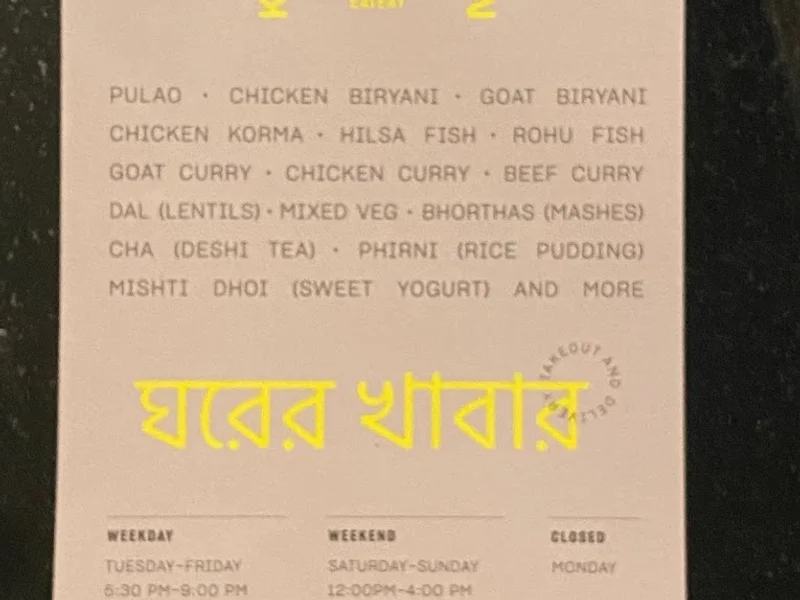 EATERY
PULAO · CHICKEN BIRYANI · GOAT BIRYANI
CHICKEN KORMA · HILSA FISH · ROHU FISH
GOAT CURRY · CHICKEN CURRY · BEEF CURRY
DAL (LENTILS) · MIXED VEG · BHORTHAS (MASHES)
CHA (DESHI TEA) · PHIRNI (RICE PUDDING)
MISHTI DHOI (SWEET YOGURT) AND MORE
TAKEOUT AND DELIVERY
ঘরের খাবার
WEEKDAY
TUESDAY-FRIDAY
5:30 PM-9:00 PM
WEEKEND
SATURDAY-SUNDAY
12:00PM-4:00 PM
CLOSED
MONDAY